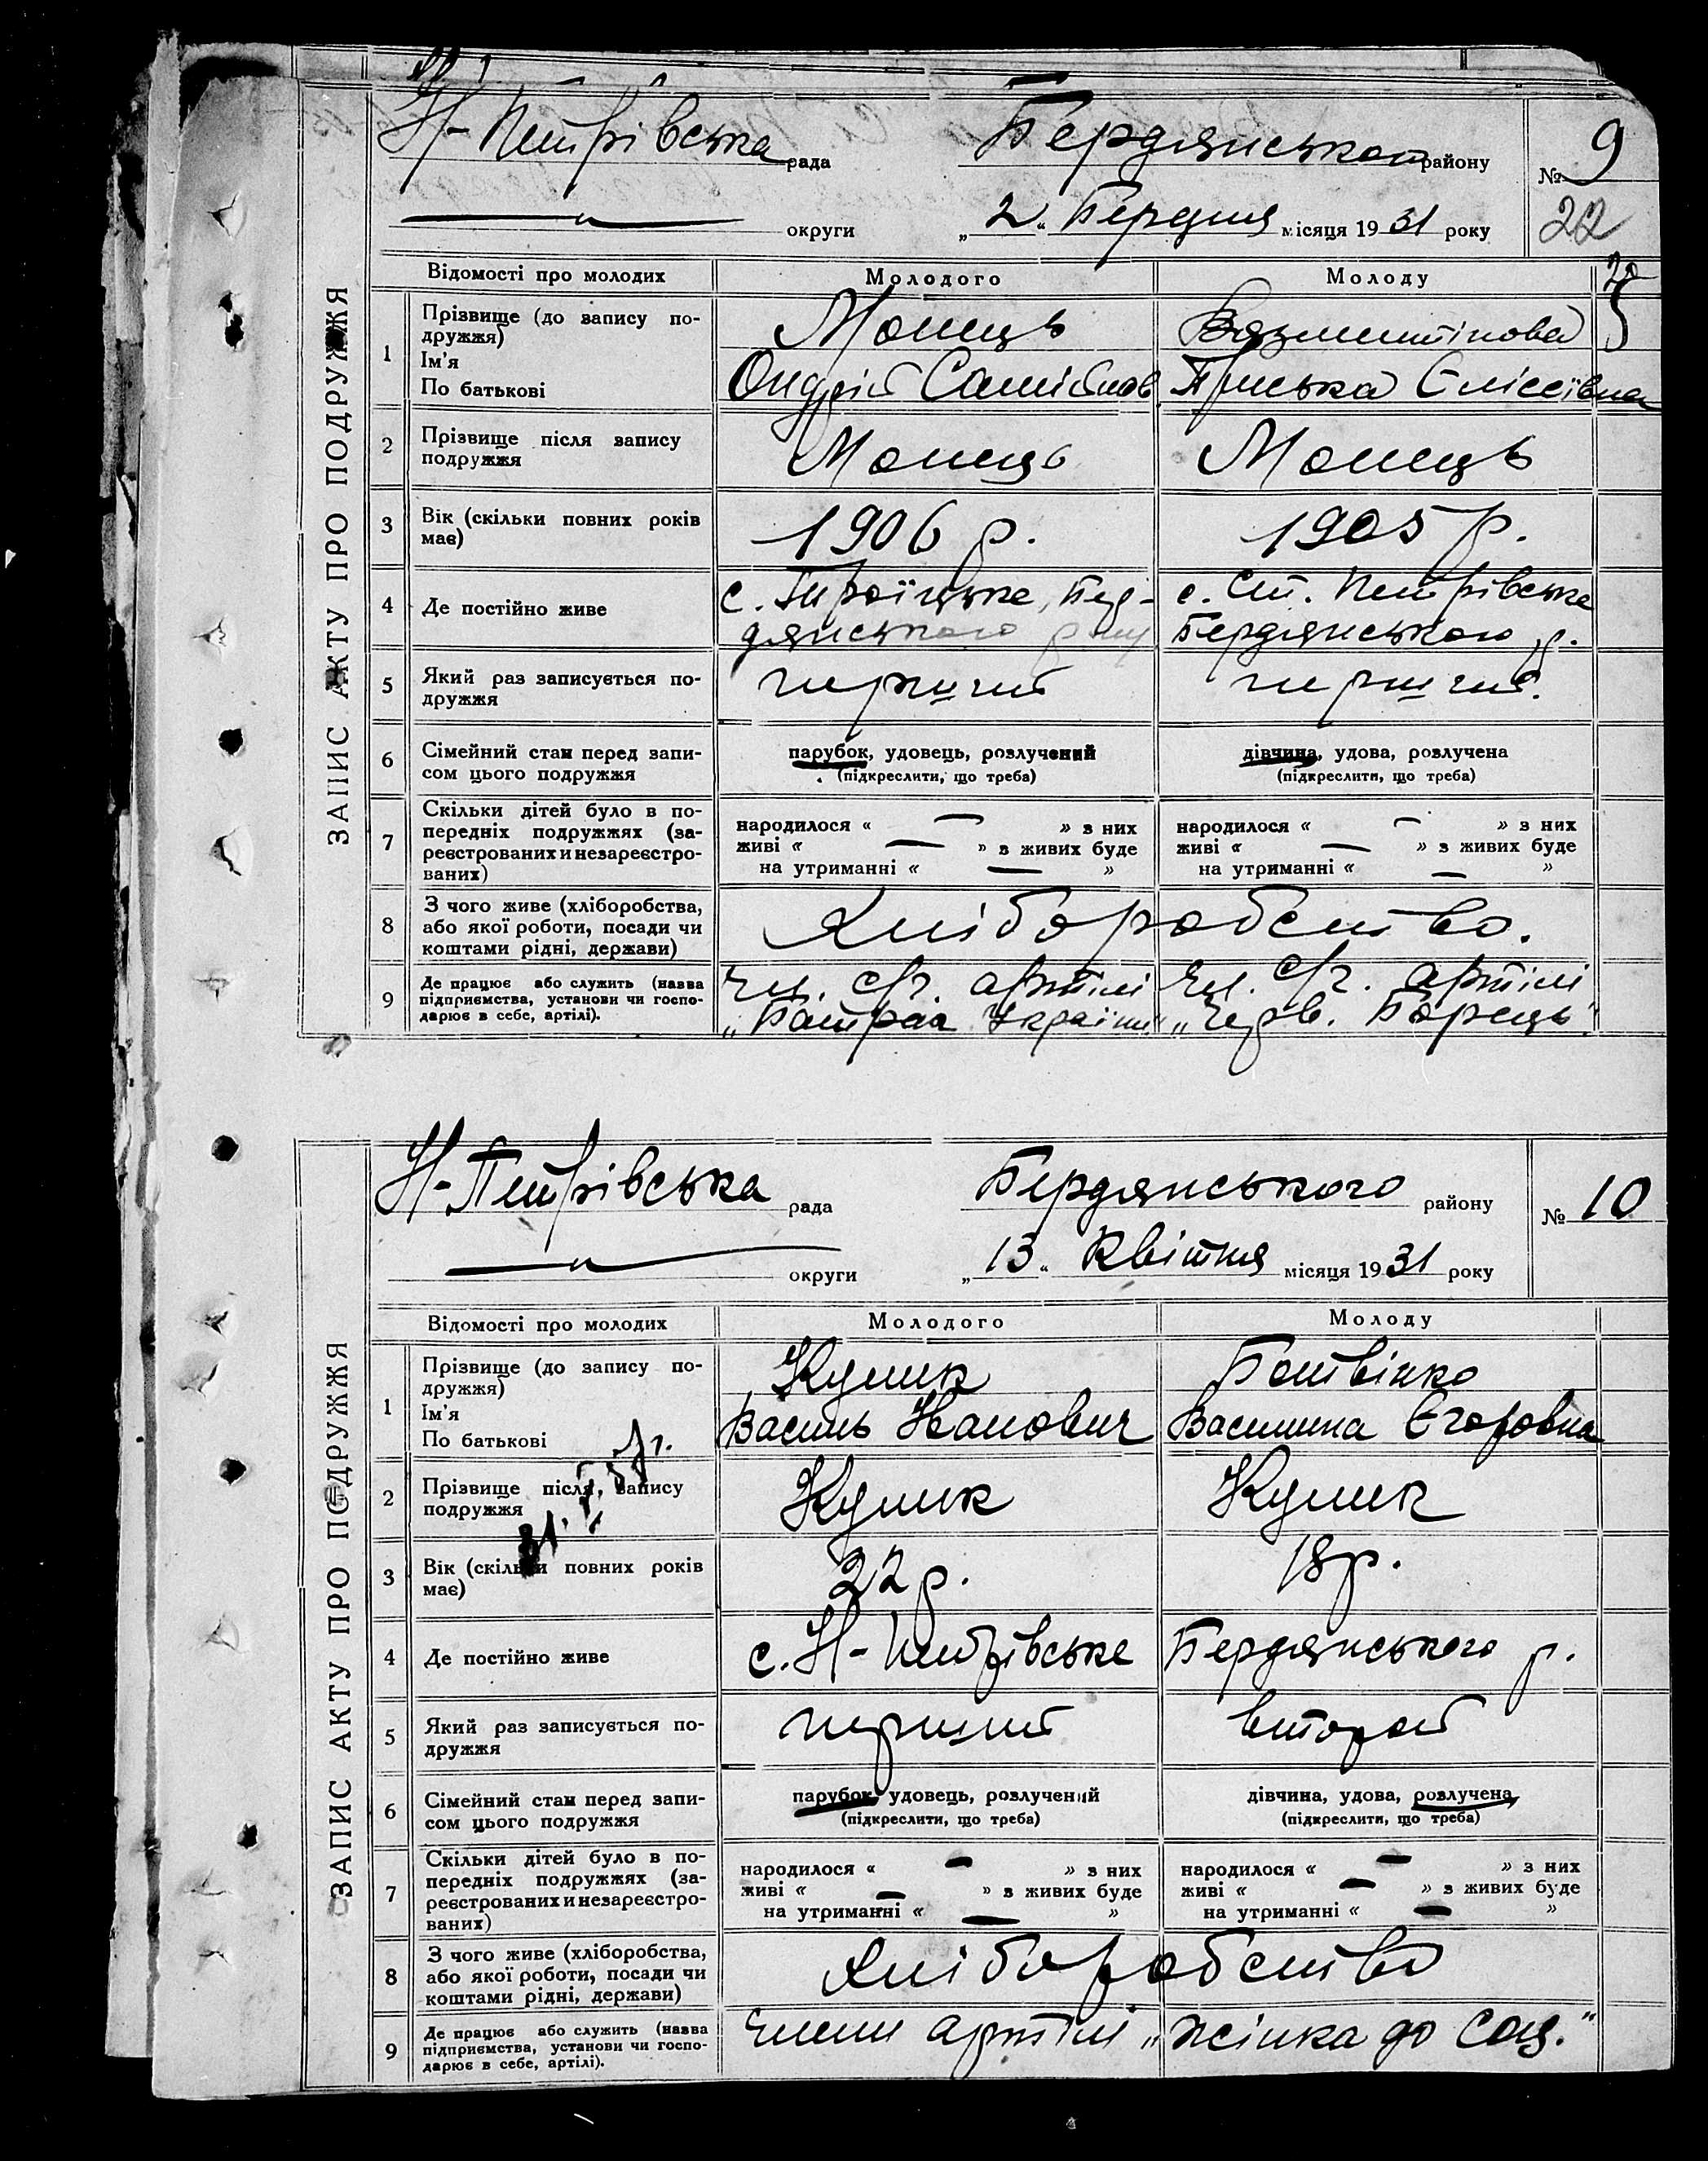 Н-Петрівська рада Бердянського району № 9
округи „2“ Березня місяця 1931 року 22
ЗАПИС АКТУ ПРО ПОДРУЖЖЯ
Відомості про молодих Молодого Молоду
1 Прізвище (до запису подружжя) Монець
Ім'я
По батькові Ондрій Приська Єлісеївна
2 Прізвище після запису подружжя Монець Монець
3 Вік (скільки повних років має) 1906 р. 1905 р.
4 Де постійно живе с. Троїцьке, Бер- с. Ст. Петрівське
дянського р-ну Бердянського р.
5 Який раз записується по- перший перший
дружжя
6 Сімейний стан перед запи- парубок, удовець, розлучений дівчина, удова, розлучена
сом цього подружжя (підкреслити, що треба) (підкреслити, що треба)
7 Скільки дітей було в по-
передніх подружжях (за- народилося « — » з них народилося « — » з них
реєстрованих и незареєстро- живі « — » з живих буде живі « — » з живих буде
ваних) на утриманні « — » на утриманні « — »
8 З чого живе (хліборобства,
або якої роботи, посади чи Хліборобство.
коштами рідні, держави)
9 Де працює або служить (назва Чл. с/г. артілі Чл. с/г. артілі
підприємства, установи чи госпо- „Батрак України“ „Черв. Борець“
дарює в себе, артілі).
Н-Петрівська рада Бердянського району № 10
округи „13“ Квітня місяця 1931 року
ЗАПИС АКТУ ПРО ПОДРУЖЖЯ
Відомості про молодих Молодого Молоду
1 Прізвище (до запису по- Кулик Ботвінко
дружжя)
Ім'я
По батькові Василь Іванович Василина Єгоровна
2 Прізвище після запису Кулик Кулик
подружжя
3 Вік (скільки повних років 22 р. 18 р.
має)
4 Де постійно живе с. Н-Петрівське Бердянського р.
5 Який раз записується по- перший второй
дружжя
6 Сімейний стан перед запи- парубок, удовець, розлучений дівчина, удова, розлучена
сом цього подружжя (підкреслити, що треба) (підкреслити, що треба)
7 Скільки дітей було в по-
передніх подружжях (за- народилося « — » з них народилося « — » з них
реєстрованих и незареєстро- живі « — » з живих буде живі « — » з живих буде
ваних) на утриманні « — » на утриманні « — »
8 З чого живе (хліборобства,
або якої роботи, посади чи Хліборобство
коштами рідні, держави)
9 Де працює або служить (назва Члени артілі „Жінка до Соц.“
підприємства, установи чи госпо-
дарює в себе, артілі).